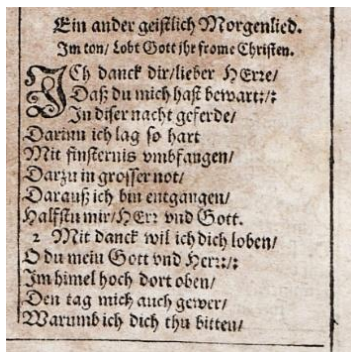 Ein ander geistlich Morgenlied.
Im ton/ Lobt Gott jhr frome Christen.
ICh danck dir/lieber HErre/
Daß du mich hast bewart:/:
In diser nacht geferde/
Darinn ich lag so hart
Mit finsternis vmbfangen/
Darzu in grosser not/
Darauß ich bin entgangen/
Halfstu mir/HErr vnd Gott.
2 Mit danck wil ich dich loben/
O du mein Gott vnd Herr:/:
Im himel hoch dort oben/
Den tag mich auch gewer/
Warumb ich dich thu bitten/